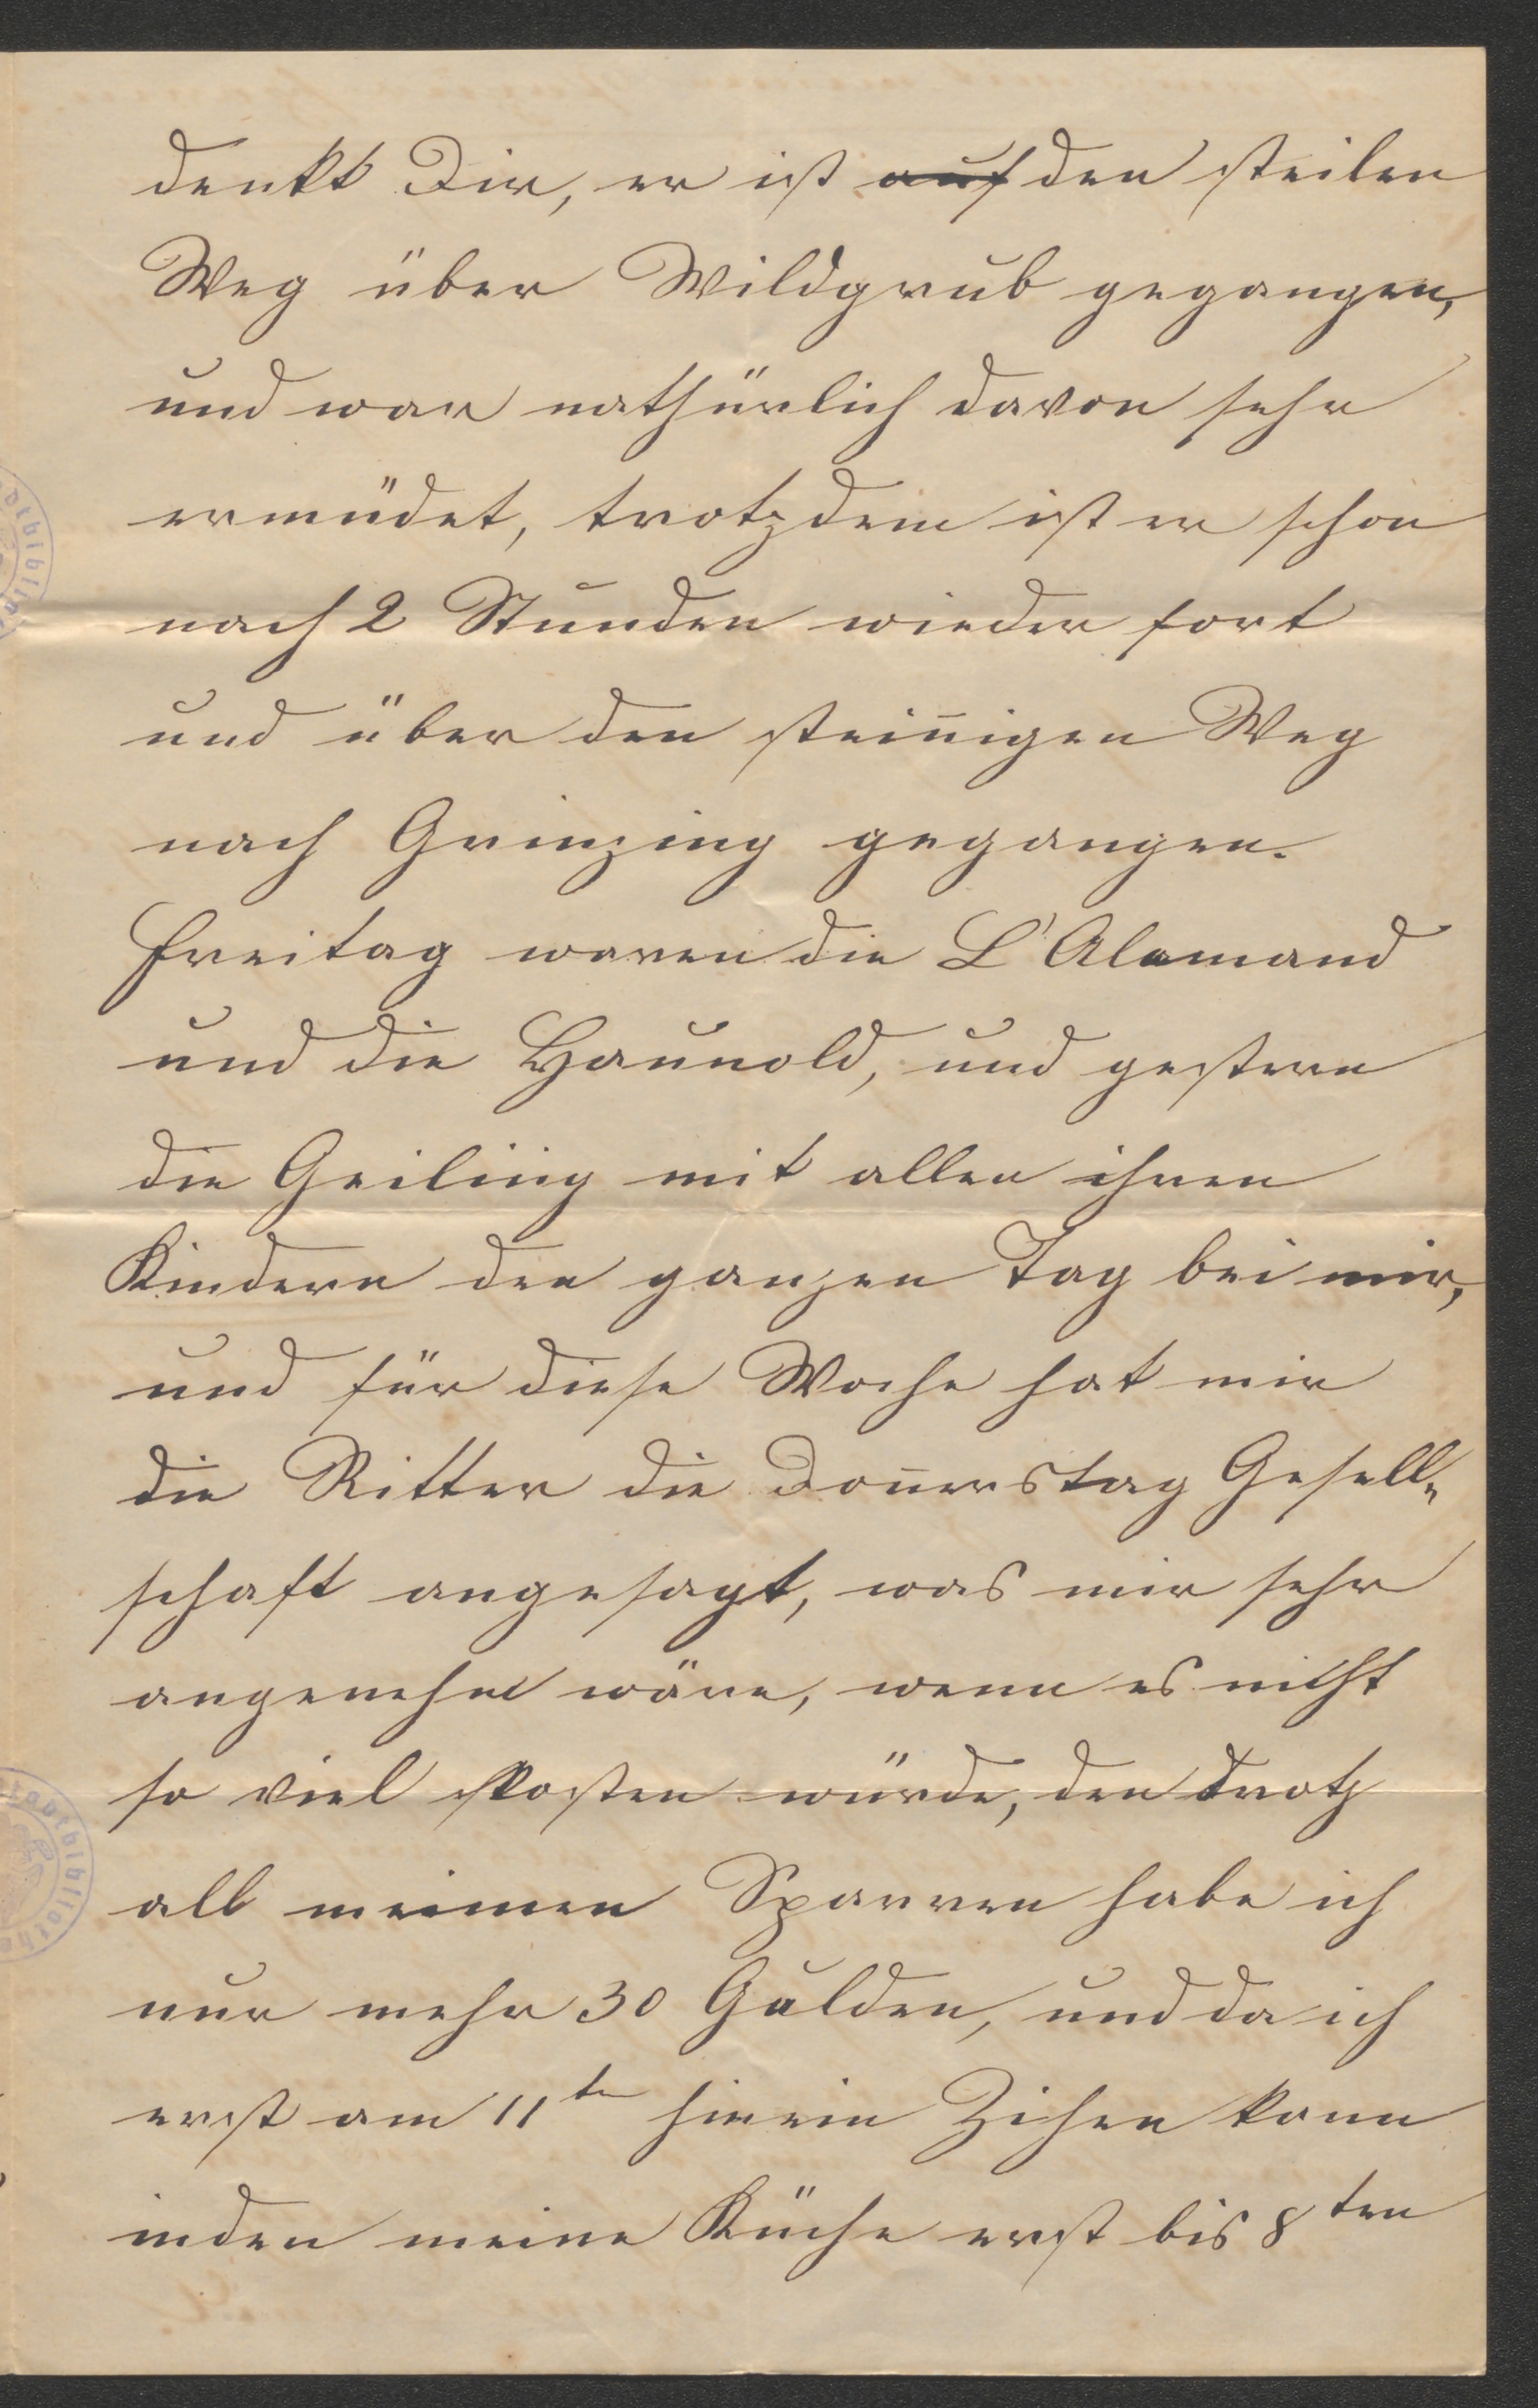 denkt Dir, er ist auf den steilen
Weg über Wildgrub gegangen,
und war nathürlich davon sehr
ermüdet, trotzdem ist er schon
nach 2 Stunden wieder fort
und über den steinigen Weg
nach Grinzing gegangen.
Freitag waren die L'Alemand
und die Haunold, und gestern
die Geiling mit allen ihren
Kindern den ganzen Tag bei mir,
und für diese Woche hat mir
die Ritter die Donnerstag Gesell-
schaft angesagt, was mir sehr
angenehm wäre, wenn es nicht
so viel kosten würde, den trotz
all meinen Sparren habe ich
nur mehr 30 Gulden, und da ich
erst am 11ten hinein Zihen kann
inden meine Küche erst bis 8ten